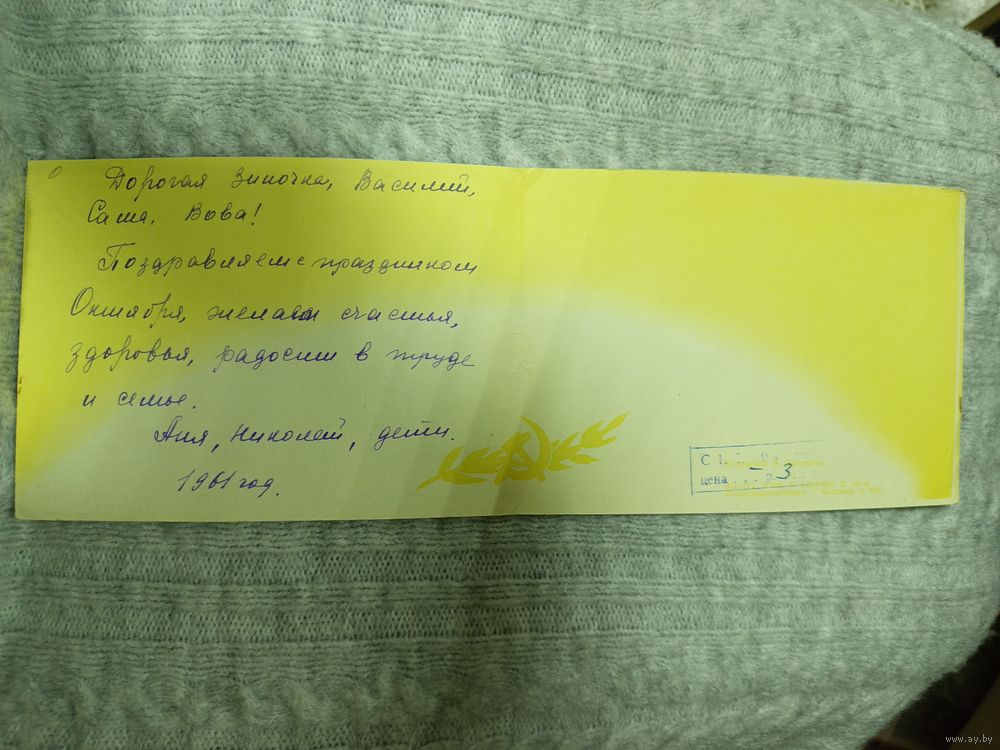 Дорогая Зиночка, Василий,
Саша, Вова!
Поздравляем с праздником
Октября, желаем счастья,
здоровья, радости в труде
и семье.
Аня, Николай, дети.
1961 год.
С 1
цена - р. 3
www.ay.by